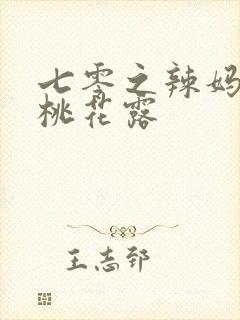 七零之辣妈
桃花露
王志郅